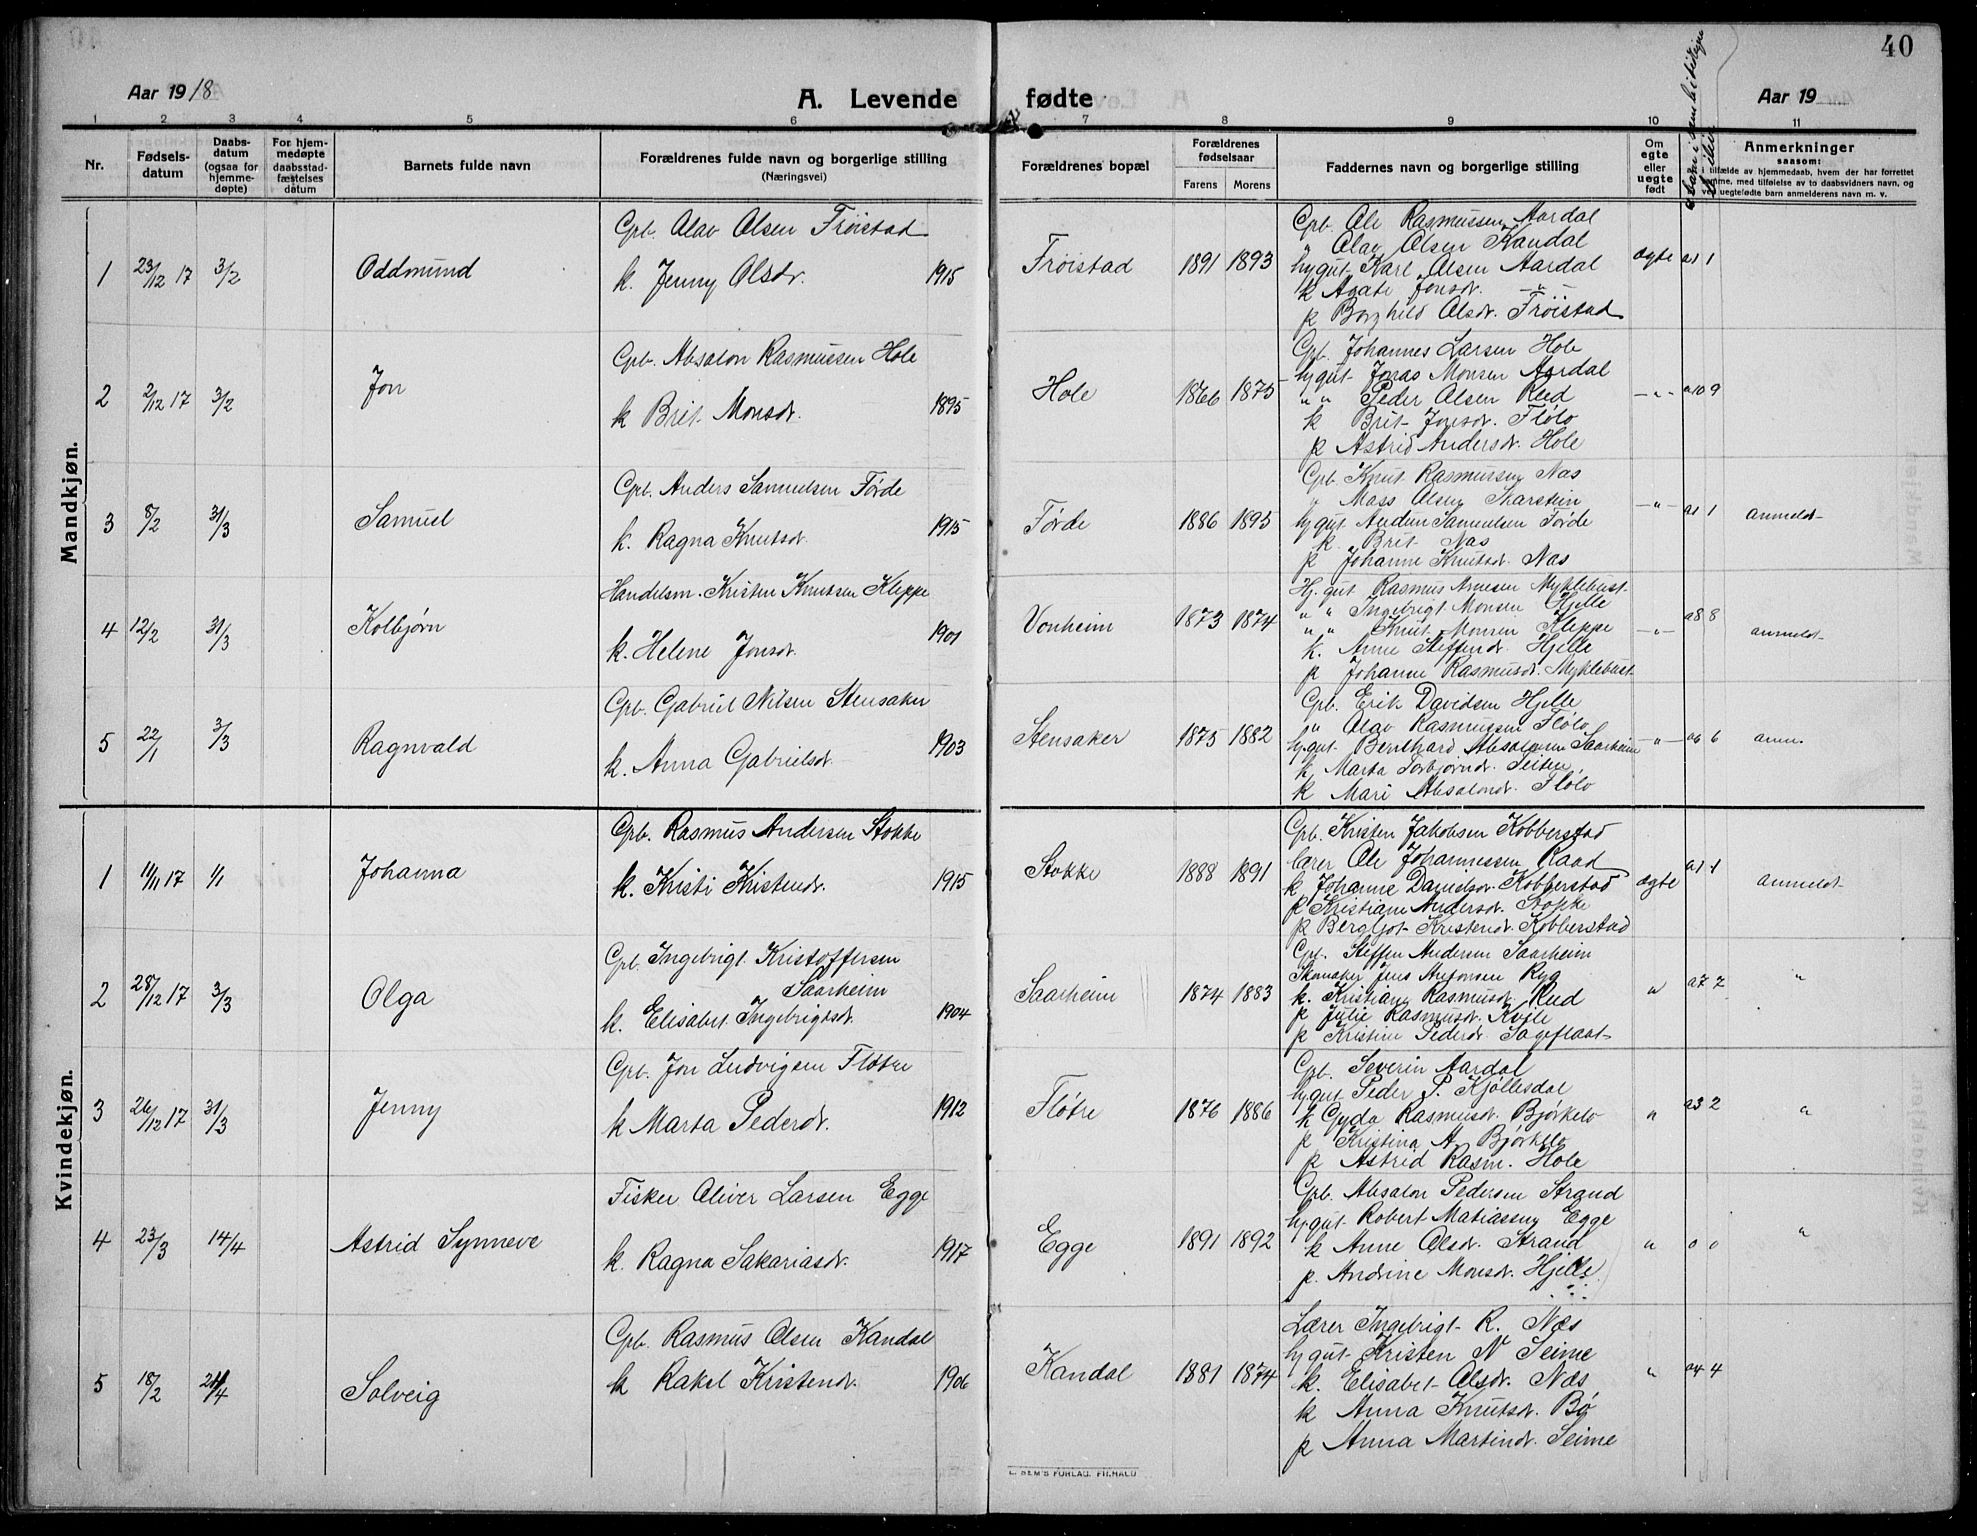 40
Aar 1918
A. Levende fødte.
Aar 19
1 2 3 4 5 6 7 8 9 10 11
Nr.
Fødsels-
datum
Daabs-
datum
(ogsaa for
hjemme-
døpte)
For hjem-
medøpte
daabsstad-
fæstelses
datum
Barnets fulde navn
Forældrenes fulde navn og borgerlige stilling
(Næringsvei)
Forældrenes bopæl
Forældrenes
fødselsaar
Farens Morens
Faddernes navn og borgerlige stilling
Om
egte
eller
uegte
født
Anmerkninger
saasom:
i tilfælde av hjemmedaab, hvem der har forrettet
samme, med tilføielse av to daabsvidners navn, og
ved uegtefødte barn anmelderens navn m. v.
Mandkjøn.
1 23/12 17 3/2 Oddmund
Grb. Olav Olsen Frøistad
k. Jenny Olsdr. 1915
Frøistad 1891 1893
Grb. Ole Rasmussen Aardal
" Olav Olsen Kandal
hj gut Karl Olsen Aardal
k Agate Jonsdr. —"—
p Borghild Olsdr. Frøistad
ægte a1 1
2 2/12 17 3/2 Jon
Grb. Absalon Rasmussen Hole
k Brit Monsdr. 1895
Hole 1866 1875
Grb. Johannes Larsen Hole
hj gut Jonas Monsen Aardal
" " Peder Olsen Reed
k Brit Jonsdr. Flølo
p Astrid Andersdr. Hole
—"— a10 9
3 8/2 31/3 Samuel
Grb. Anders Samuelsen Førde
k. Ragna Knutsdr. 1915
Førde 1886 1895
Grb Knut Rasmussen Nas
" Mass Olsen Skarstein
hj gut Andun Samuelsen Førde
k. Brit Nas
p Johanne Knutsdr. Nas
—"— a1 1 anmeldt
4 12/2 31/3 Kolbjørn
Handelsm. Kristen Knutsen Kleppe
k. Helene Jonsdr. 1901
Vonheim 1873 1874
Hj. gut Rasmus Arnesen Myklebust
" " Ingebrigt Monsen Hjelle
" " Knut Monsen Kleppe
k. Anne Steffensdr. Hjelle
p Johanne Rasmusdr. Myklebust
—"— a8 8 anmeldt
5 22/1 3/3 Ragnvald
Grb. Gabriel Nilsen Stensaker
k. Anna Gabrielsdr. 1903
Stensaker 1875 1882
Grb. Erik Davidsen Hjelle
" Olav Rasmussen Flølo
hj.gut. Bernhard Absalonsen Saarheim
k Marta Torbjørndr. Seiten
k Mari Absalonsdr. Flølo
—"— a6 6 anm.
Kvindekjøn.
1 11/11 17 1/1 Johanna
Grb. Rasmus Andersen Stokke
k. Kristi Kristendr. 1915
Stokke 1888 1891
Grb. Kristen Jakobsen Kobberstad
lærer Ole Johannessen Raad
k Johanne Danielsdr. Kobberstad
p Kristiane Andersdr. Stokke
p Bergljot Kristendr. Kobberstad
ægte a1 1 anmeldt
2 28/12 17 3/3 Olga
Grb. Ingebrigt Kristoffersen
Saarheim
k. Elisabet Ingebrigtsdr. 1904
Saarheim 1874 1883
Grb. Steffen Andersen Saarheim
Skomaker Jens Antonsen Ryg
k. Kristiane Rasmusdr. Reed
p Julie Rasmusdr. Kvile
p Kristine Pedersdr. Sageflaat
" a7 2 "
3 26/12 17 31/3 Jenny
Grb. Jon Ludvigsen Fløtre
k Marta Pedersdr. 1912
Fløtre 1876 1886
Grb. Severin Aardal
hj gut Peder P. Kjøllesdal
k Gyda Rasmusdr. Bjørkelo
p Kristina A. Bjørkelo
p Astrid Rasm. Hole
" a3 2 "
4 23/3 14/4 Astrid Synneve
Fisker Oliver Larsen Egge
k. Ragna Sakariasdr. 1917
Egge 1891 1892
Grb. Absalon Pedersen Strand
hj gut Robert Matiassen Egge
k Anne Olsdr. Strand
p. Andrine Monsdr. Hjelle
" 0 0 "
5 18/2 21/4 Solveig
Grb. Rasmus Olsen Kandal
k Rakel Kristendr. 1906
Kandal 1881 1874
Lærer Ingebrigt R. Næs
hj gut Kristen N Seime
k. Elisabet Olsdr. Næs
k Anna Knutsdr. Bø
p Anna Martindr. Seime
" a4 4
SEM'S FORLAG, FR.HALD